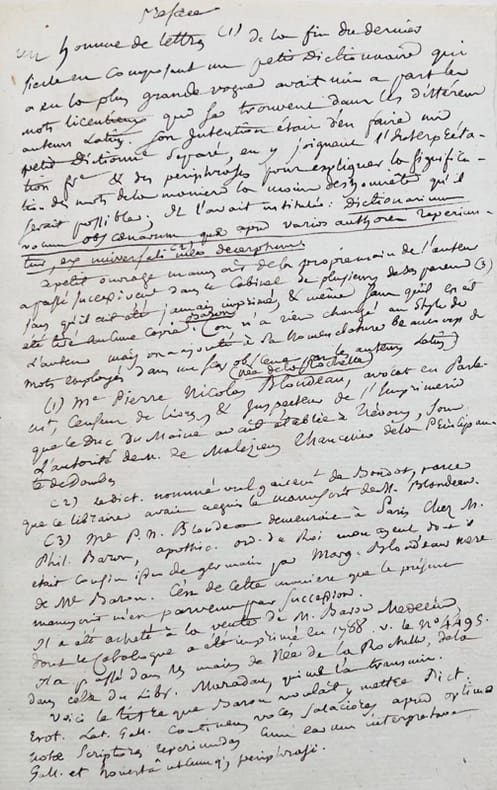 Preface
un homme de lettres (1) de la fin du dernier
siecle en composant un petit Dictionnaire qui
a eu la plus grande vogue avait mis a part les
mots licentieux que se trouvent dans les différens
auteurs Latins. Son Intention était d'en faire un
petit Dictionre Separé, en y joignant l'Interpréta-
tion fse & des periphrases pour expliquer la signifi-
tion des mots de la maniere la moins deshonnête qu'il
serait possible. Il l'avait intitulé: Dictionarium
vocum obscoenarum quae apud varios authores reperiun-
tur, ex universali (2) decerptum
petit ouvrage manuscrit de la propre main de l'auteur
a passé successivement dans le Cabinet de plusieurs de ses parens (3)
sans qu'il ait été jamais imprimé, & même sans qu'il en ait
été tiré aucune copie. (Baron) On n'a rien changé au style de
l'auteur mais on a ajouté à sa Nomenclature beaucoup de
mots employés dans un sens obscene par les auteurs Latins
(Née de la Rochelle)
(1) Me Pierre Nicolas Blondeau, avocat en Parle-
mt, Censeur de livres, & Inspecteur de l'Imprimerie
que le Duc du Maine avait établie à Trévoux, sous
l'autorité de M. de Malezieu Chancelier de la Principau-
té de Dombes
(2) Le dict. nommé de Boudot, parce
que ce libraire avait acquis le manuscrit de M. Blondeau.
(3) Me P. N. Blondeau demeurait à Paris chez M.
Phil. Baron, apothic. ord. du Roi mon ayeul dont il
était cousin issu de germain par Marg. Blondeau mere
de Mr Baron. C'est de cette maniere que le présent
manuscrit m'en parvenu par succession.
Il a été acheté à la vente de M. Baron Medecin
dont le Catalogue a été imprimé en 1788. v. le No 4495.
Il a passé dans les mains de Née de la Rochelle, de là
dans celle du Libr. Meradan, qui me l'a transmis.
Voici le titre que Baron voulait y mettre Dict.
Erot. Lat. Gall. Continens voces salaciores apud optimae
notae Scriptores reperiundas cum earum interpretatione
Gall. et honestâ periphrasi.